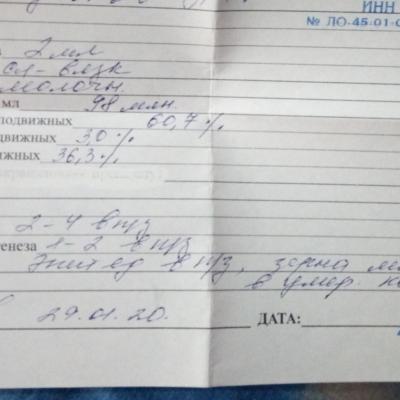 ИНН
№ ЛО-45-01-0
2 мл
сл-вязк
молочн.
мл 98 млн.
подвижных 60,7%
движных 3,0%
ижных 36,3%
2-4 в п/з
генеза 1-2 в п/з
Эпит ед в п/з, зерна
в умер.
29.01.20. ДАТА: